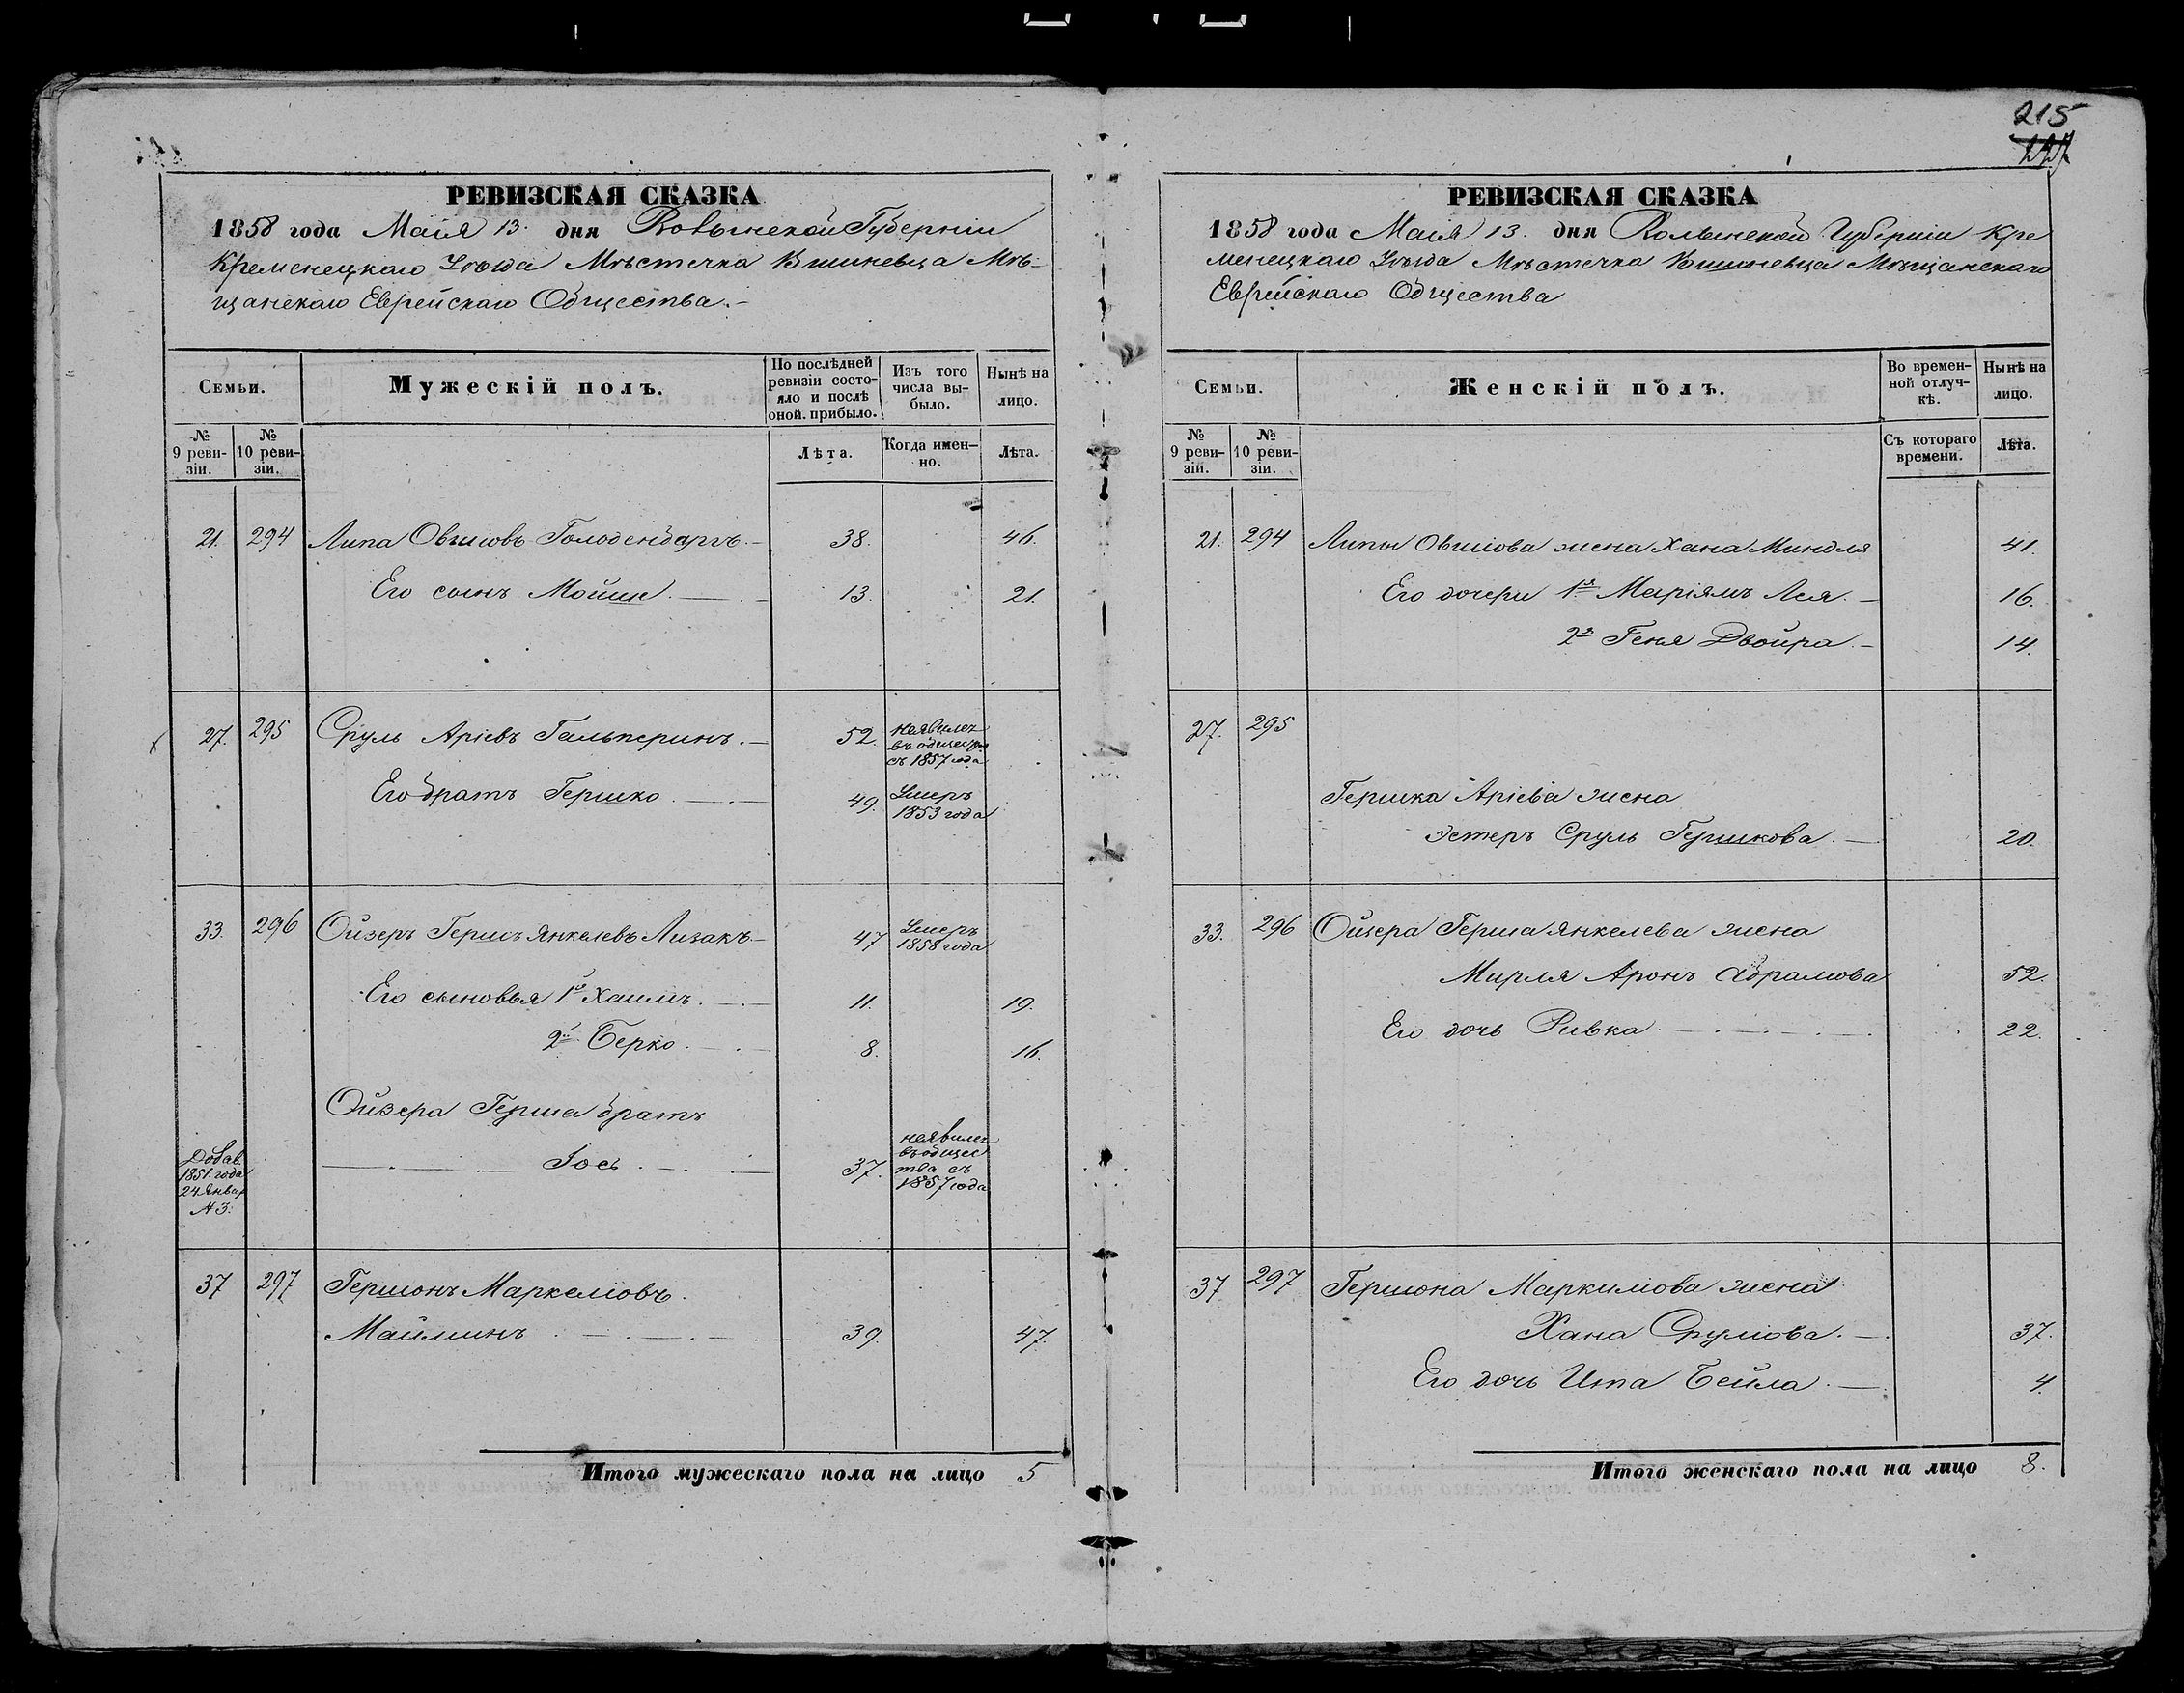 215
РЕВИЗСКАЯ СКАЗКА
1858 года Маія 13. дня Волынской Губерніи
Кременецкаго Уѣзда Мѣстечка Вишневца Мѣ-
щанскаго Еврейскаго Общества.-
Семьи.
Мужескій полъ.
По послѣдней ревизіи состо-
яло и послѣ оной прибыло.
Изъ того числа вы-
было.
Нынѣ на лицо.
№ 9 реви-
зіи.
№ 10 реви-
зіи.
Лѣта.
Когда имен-
но.
Лѣта.
21. 294 Липа Овшіовъ Голодендаргъ. 38. 46.
Его сынъ Мошко 13. 21.
27. 295 Сруль Аріевъ Гальперинъ. 52. неявился
въ обществ
съ 1857 года
Его братъ Гершко 49. Умеръ
1853 года
33. 296 Ойзеръ Гершъ Янкелевъ Лизакъ 47. Умеръ
1858 года
Его сыновья 1й Хаимъ. 11. 19.
2й Берко. 8. 16.
Ойзера Герша братъ
Іось 37. неявился
въ общес
тва съ
1857 года
Добав.
1851. года
24 Январ
№ 3.
37 297 Гершонъ Маркеліовъ.
Майминъ 39. 47.
Итого мужескаго пола на лицо 5
РЕВИЗСКАЯ СКАЗКА
1858 года Маія 13. дня Волынской Губерніи Кре
менецкаго Уѣзда Мѣстечка Вишневца Мѣщанскаго
Еврейскаго Общества
Семьи.
Женскій полъ.
Во времен-
ной отлуч-
кѣ.
Нынѣ на лицо.
№ 9 реви-
зіи.
№ 10 реви-
зіи.
Съ котораго времени.
Лѣта.
21. 294 Липы Овшіова жена Хана Миндля 41.
Его дочери 1я Маріямъ Лея. 16.
2я Геня Двойра. 14.
27. 295
Гершка Аріева жена
Эстеръ Сруль Гершкова. 20.
33. 296 Ойзера Герша Янкелева жена
Мирля Аронъ Абрамова 52.
Его дочь Ривка 22.
37 297 Гершона Маркиліова жена
Хана Сруліова. 37.
Его дочь Ита Бейла 4.
Итого женскаго пола на лицо 8.